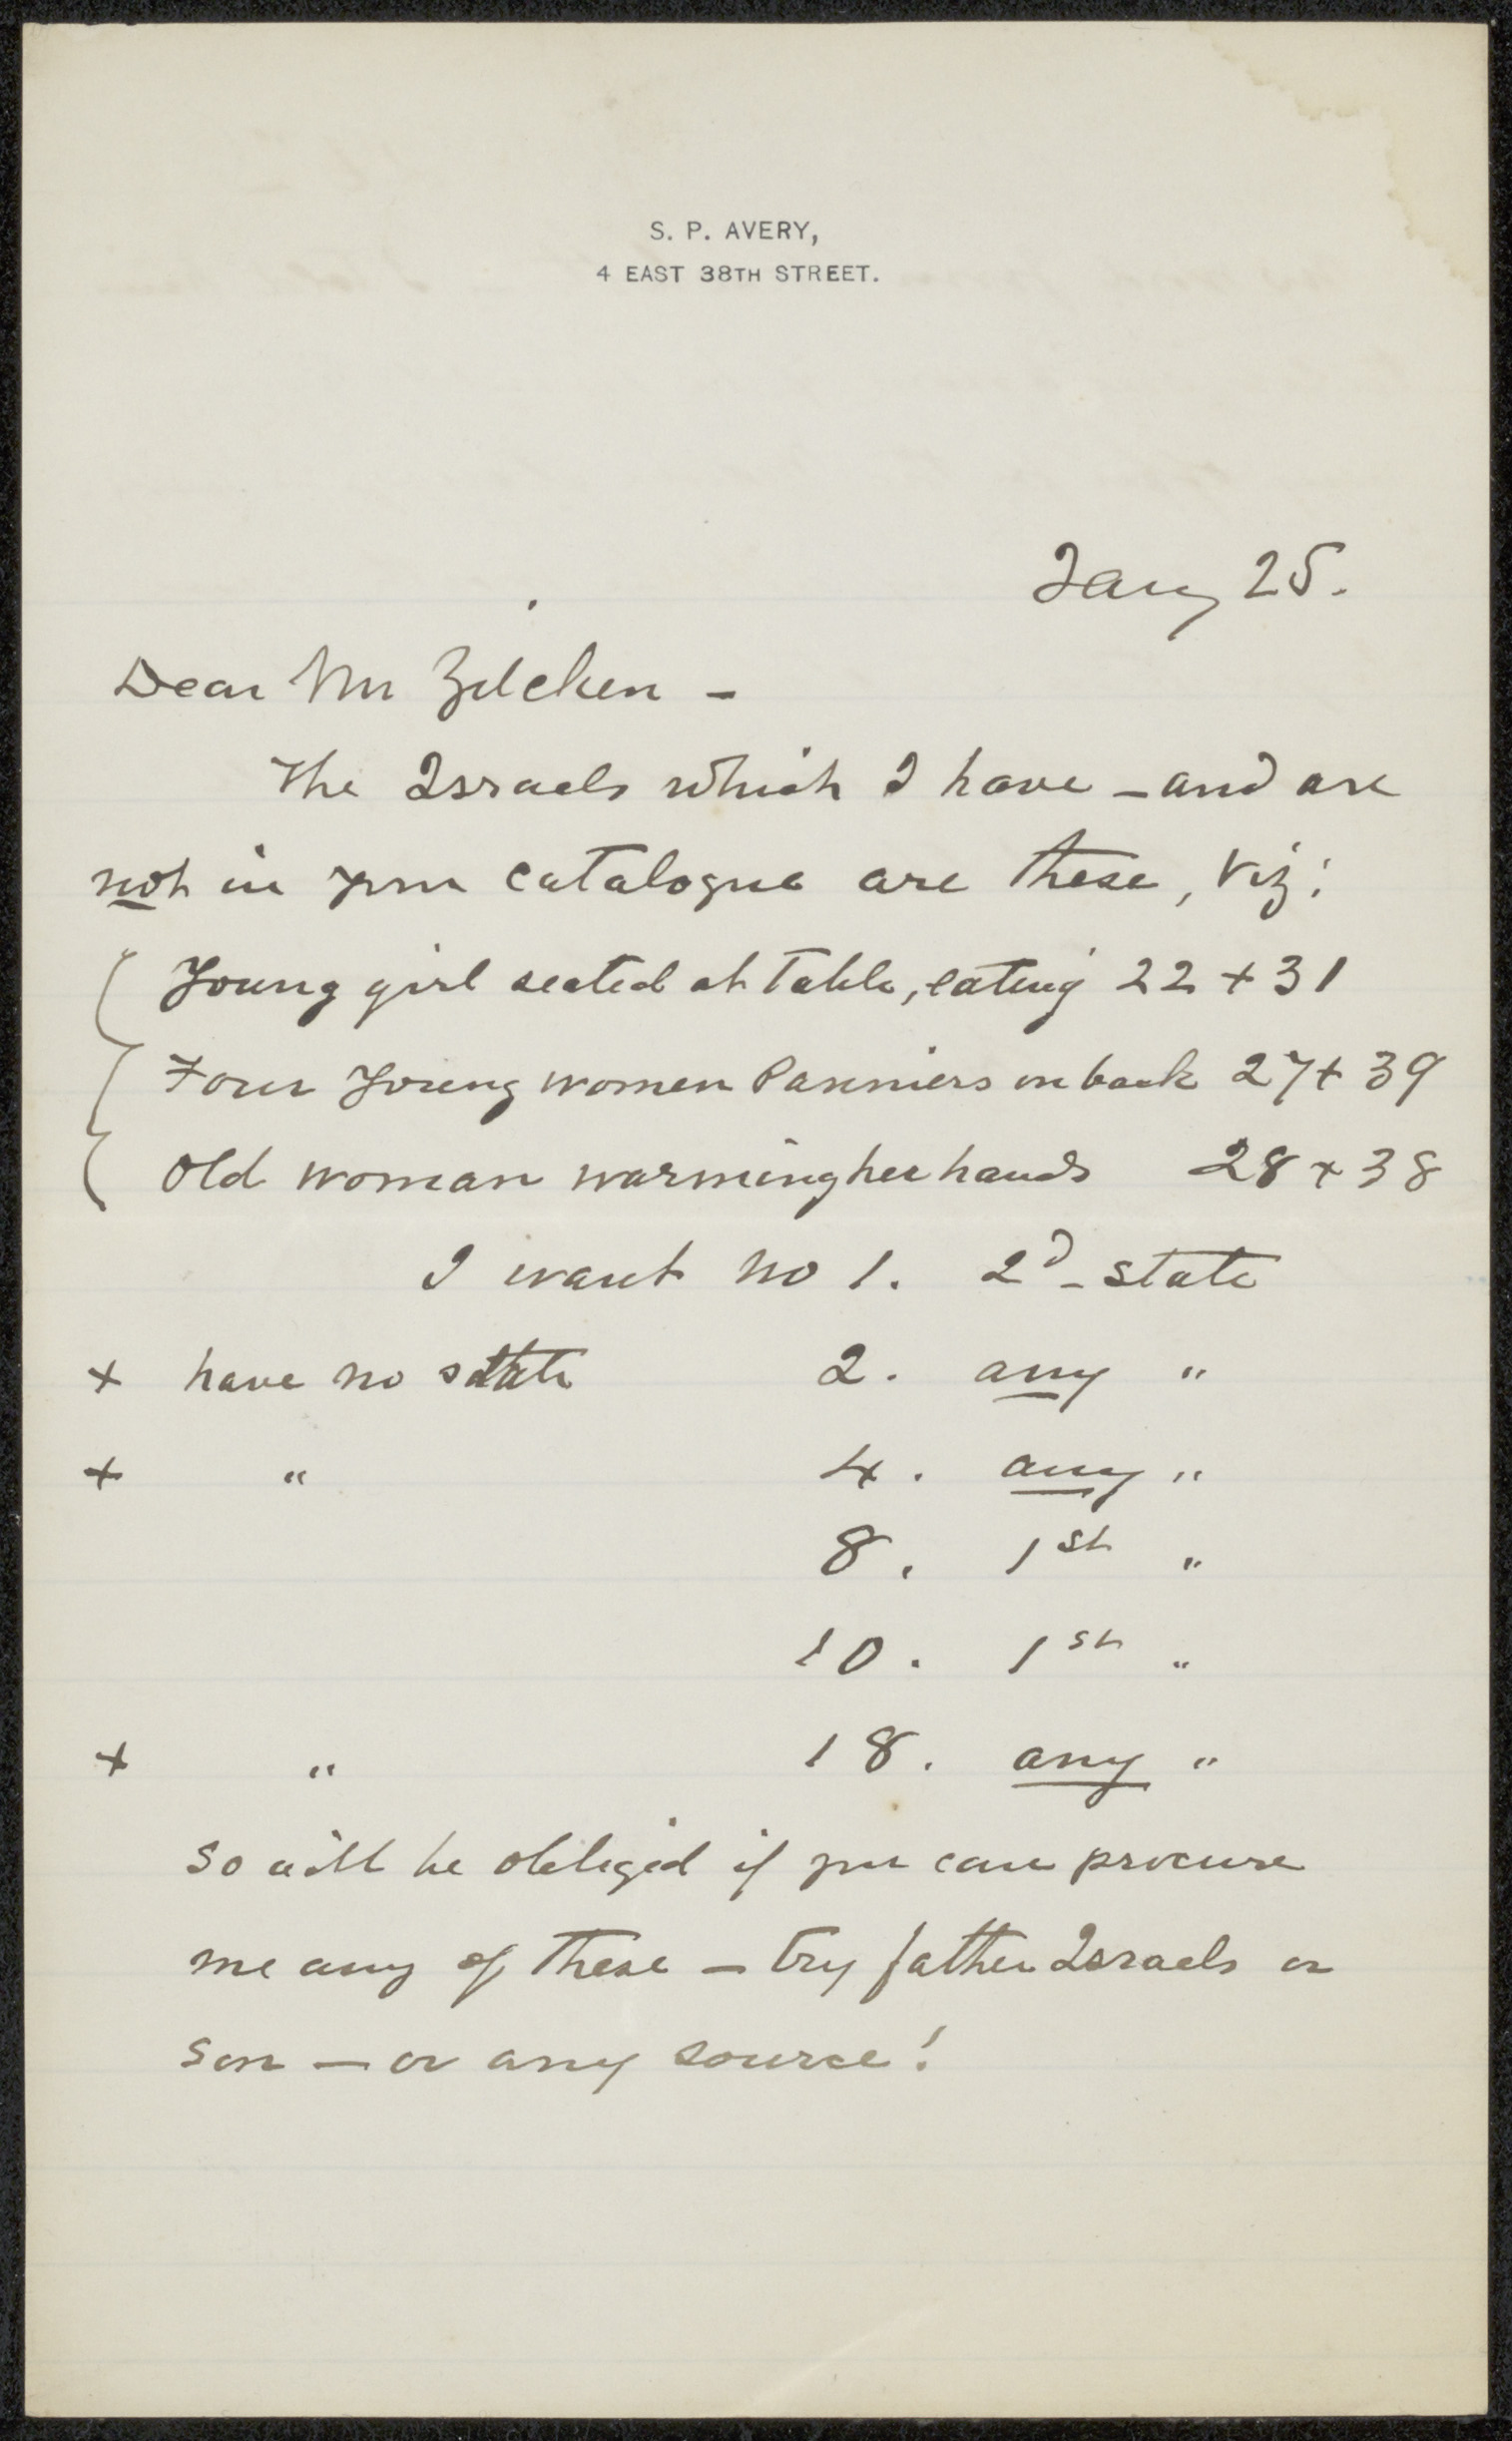 S. P. AVERY,
4 EAST 38TH STREET.
Jany 25.
Dear Mr Zilcken –
The Israels which I have – and are
not in your catalogue are these, viz:
Young girl seated at table, eating 22 + 31
Four Young women Panniers on back 27 + 39
Old woman warming her hands 28 + 38
I want no 1. 2d – state
+ have no state 2. any "
+ " 4. any "
8. 1st "
10. 1st "
+ " 18. any "
so will be obliged if you can procure
me any of these – try father Israels or
son – or any source!